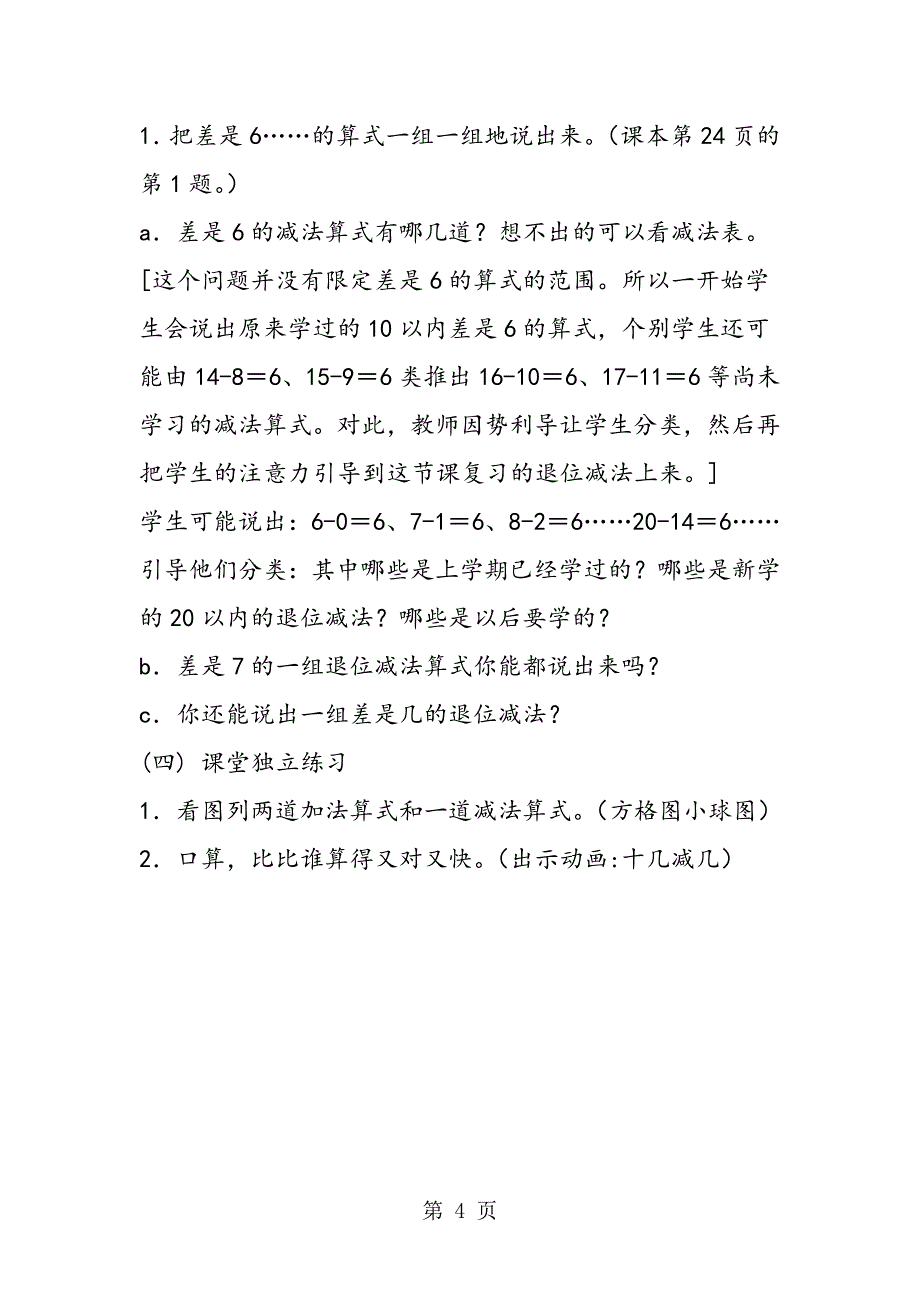 1．把差是6……的算式一组一组地说出来。（课本第24页的
第1题。）
a．差是6的减法算式有哪几道？想不出的可以看减法表。
[这个问题并没有限定差是6的算式的范围。所以一开始学
生会说出原来学过的10以内差是6的算式，个别学生还可
能由14-8＝6、15-9＝6类推出16-10＝6、17-11＝6等尚未
学习的减法算式。对此，教师因势利导让学生分类，然后再
把学生的注意力引导到这节课复习的退位减法上来。]
学生可能说出：6-0＝6、7-1＝6、8-2＝6……20-14＝6……
引导他们分类：其中哪些是上学期已经学过的？哪些是新学
的20以内的退位减法？哪些是以后要学的？
b．差是7的一组退位减法算式你能都说出来吗？
c．你还能说出一组差是几的退位减法？
(四) 课堂独立练习
1．看图列两道加法算式和一道减法算式。（方格图小球图）
2．口算，比比谁算得又对又快。（出示动画:十几减几）
第 4 页